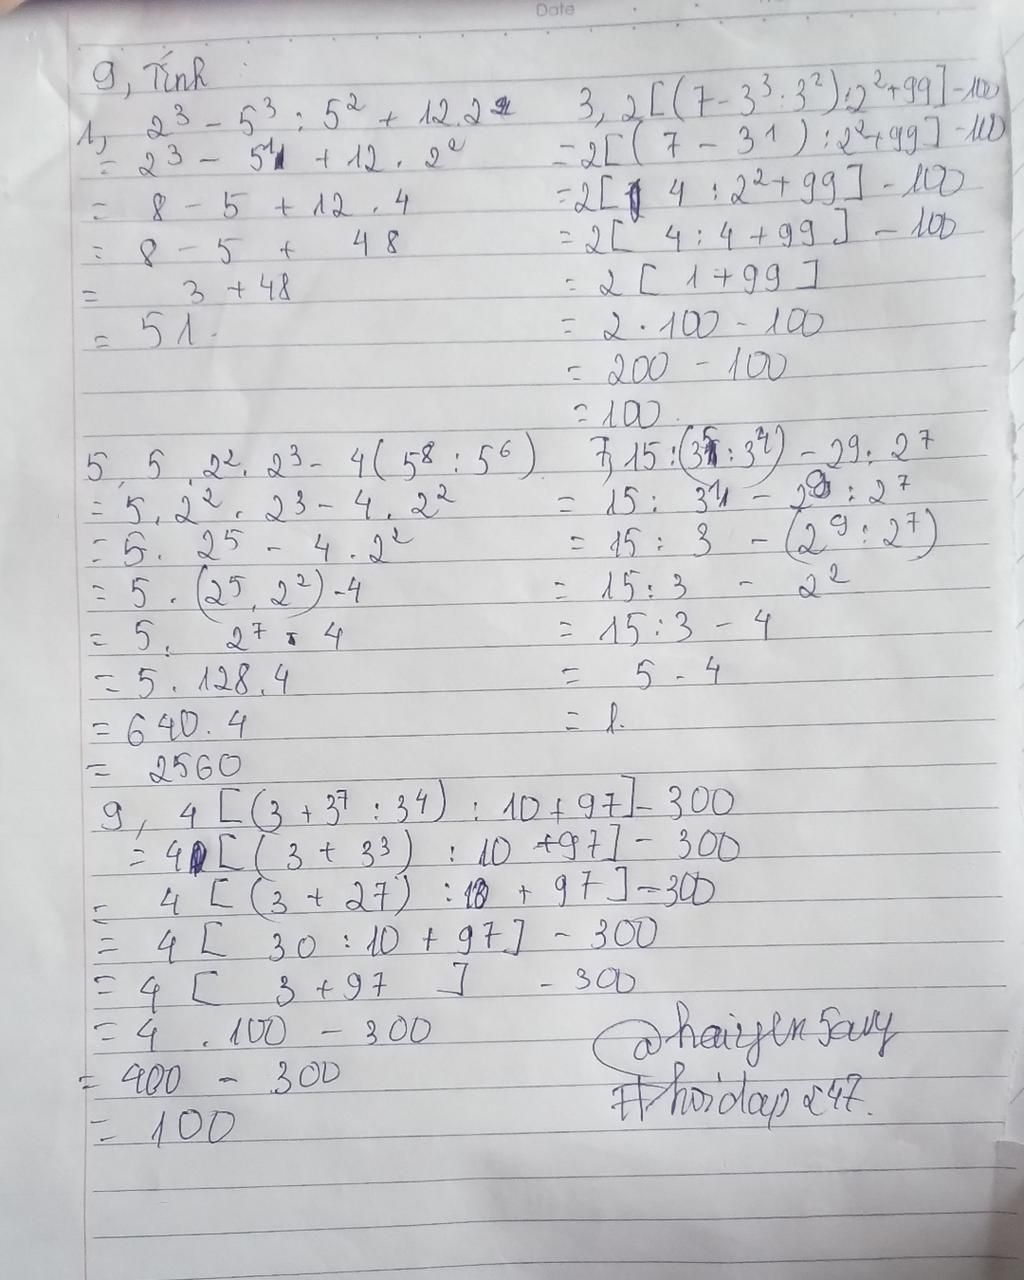 Date
9, Tính
1, 2³ - 5³ : 5² + 12.2²
= 2³ - 5¹ + 12 . 2²
= 8 - 5 + 12 . 4
= 8 - 5 + 48
= 3 + 48
= 51.
3, 2[(7 - 3³ : 3²) : 2² + 99] - 100
= 2[( 7 - 3¹ ) : 2² + 99] - 100
= 2[ 4 : 2² + 99] - 100
= 2[ 4 : 4 + 99 ] - 100
= 2 [ 1 + 99 ]
= 2 . 100 - 100
= 200 - 100
= 100.
5, 5 . 2² . 2³ - 4(5⁸ : 5⁶)
= 5 . 2² . 2³ - 4 . 2²
= 5 . 2⁵ - 4 . 2²
= 5 . (2⁵ . 2²) - 4
= 5 . 2⁷ . 4
= 5 . 128 . 4
= 640 . 4
= 2560
7, 15 : (3⁵ : 3⁴) - 29 : 2⁷
= 15 : 3¹ - 2⁹ : 2⁷
= 15 : 3 - (2⁹ : 2⁷)
= 15 : 3 - 2²
= 15 : 3 - 4
= 5 - 4
= 1.
9, 4 [(3 + 3⁷ : 3⁴) : 10 + 97] - 300
= 4 [ (3 + 3³) : 10 + 97] - 300
= 4 [ (3 + 27) : 10 + 97 ] - 300
= 4 [ 30 : 10 + 97] - 300
= 4 [ 3 + 97 ] - 300
= 4 . 100 - 300
= 400 - 300
= 100
#hoidap247.